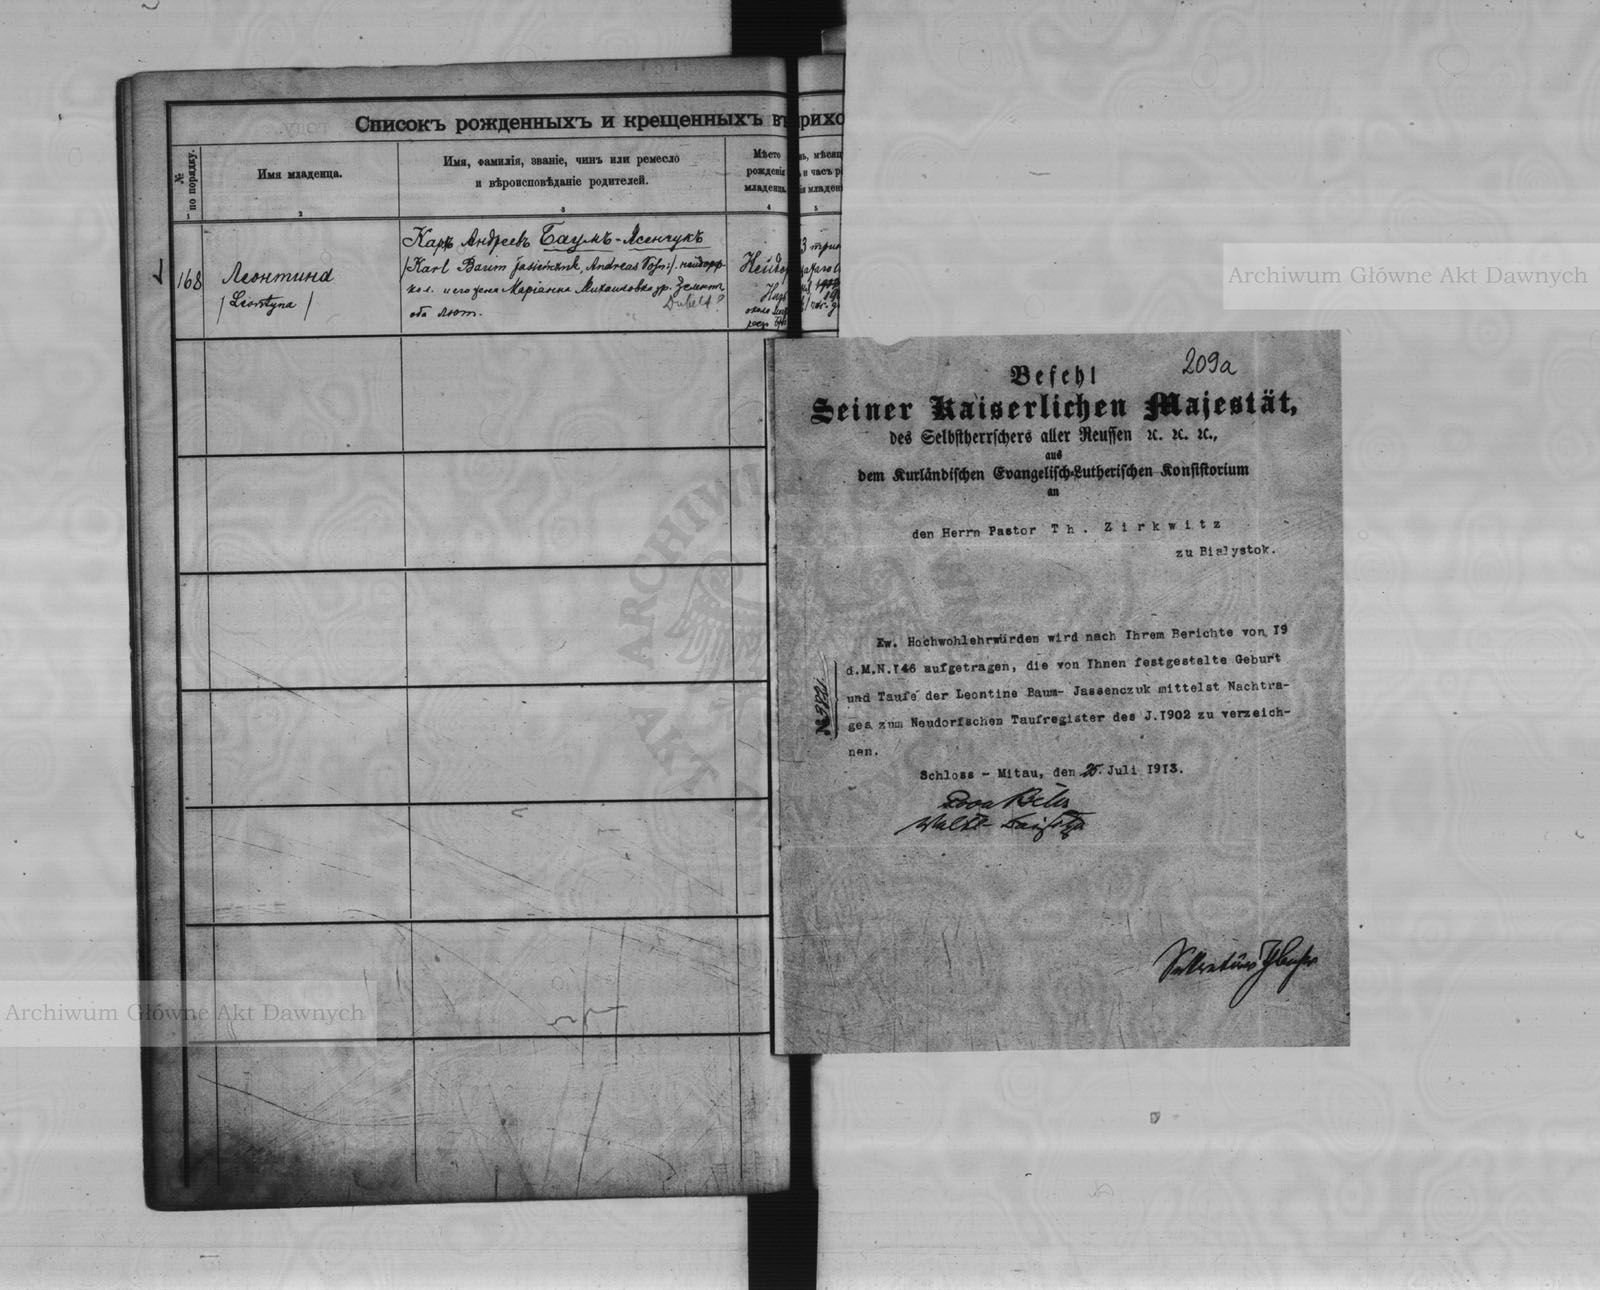 Списокъ рожденныхъ и крещенныхъ въ прихо
№ по порядку.
Имя младенца.
Имя, фамилія, званіе, чинъ или ремесло
и вѣроисповѣданіе родителей.
Мѣсто
рожденія
младенца.
мѣсяц
и часъ р
младен
1
2
3
4
5
168
Леонтина
/ Leontyna /
Карлъ Андреевъ Баумъ-Ясенчукъ
/Karl Baum Jasienczuk, Andreas Sohn/. нейдорф-
кол. и его жена Маріанна Михайловна ур.
Dubelt?
оба лют.
Нейдо
около
3 три
Befehl
209a
Seiner Kaiserlichen Majestät,
des Selbstherrschers aller Reussen ꝛc. ꝛc. ꝛc.,
aus
dem Kurländischen Evangelisch-Lutherischen Konsistorium
an
den Herrn Pastor Th. Zirkwitz
zu Bialystok.
Ew. Hochwohlehrwürden wird nach Ihrem Berichte von 19
d.M.N.146 aufgetragen, die von Ihnen festgestelte Geburt
und Taufe der Leontine Baum- Jassenczuk mittelst Nachtra-
ges zum Neudorfschen Taufregister des J.1902 zu verzeich-
nen.
Schloss - Mitau, den 25. Juli 1913.
Sekretär
Archiwum Główne Akt Dawnych
Archiwum Główne Akt Dawnych
ARCHIWUM
AKT DAWNYCH